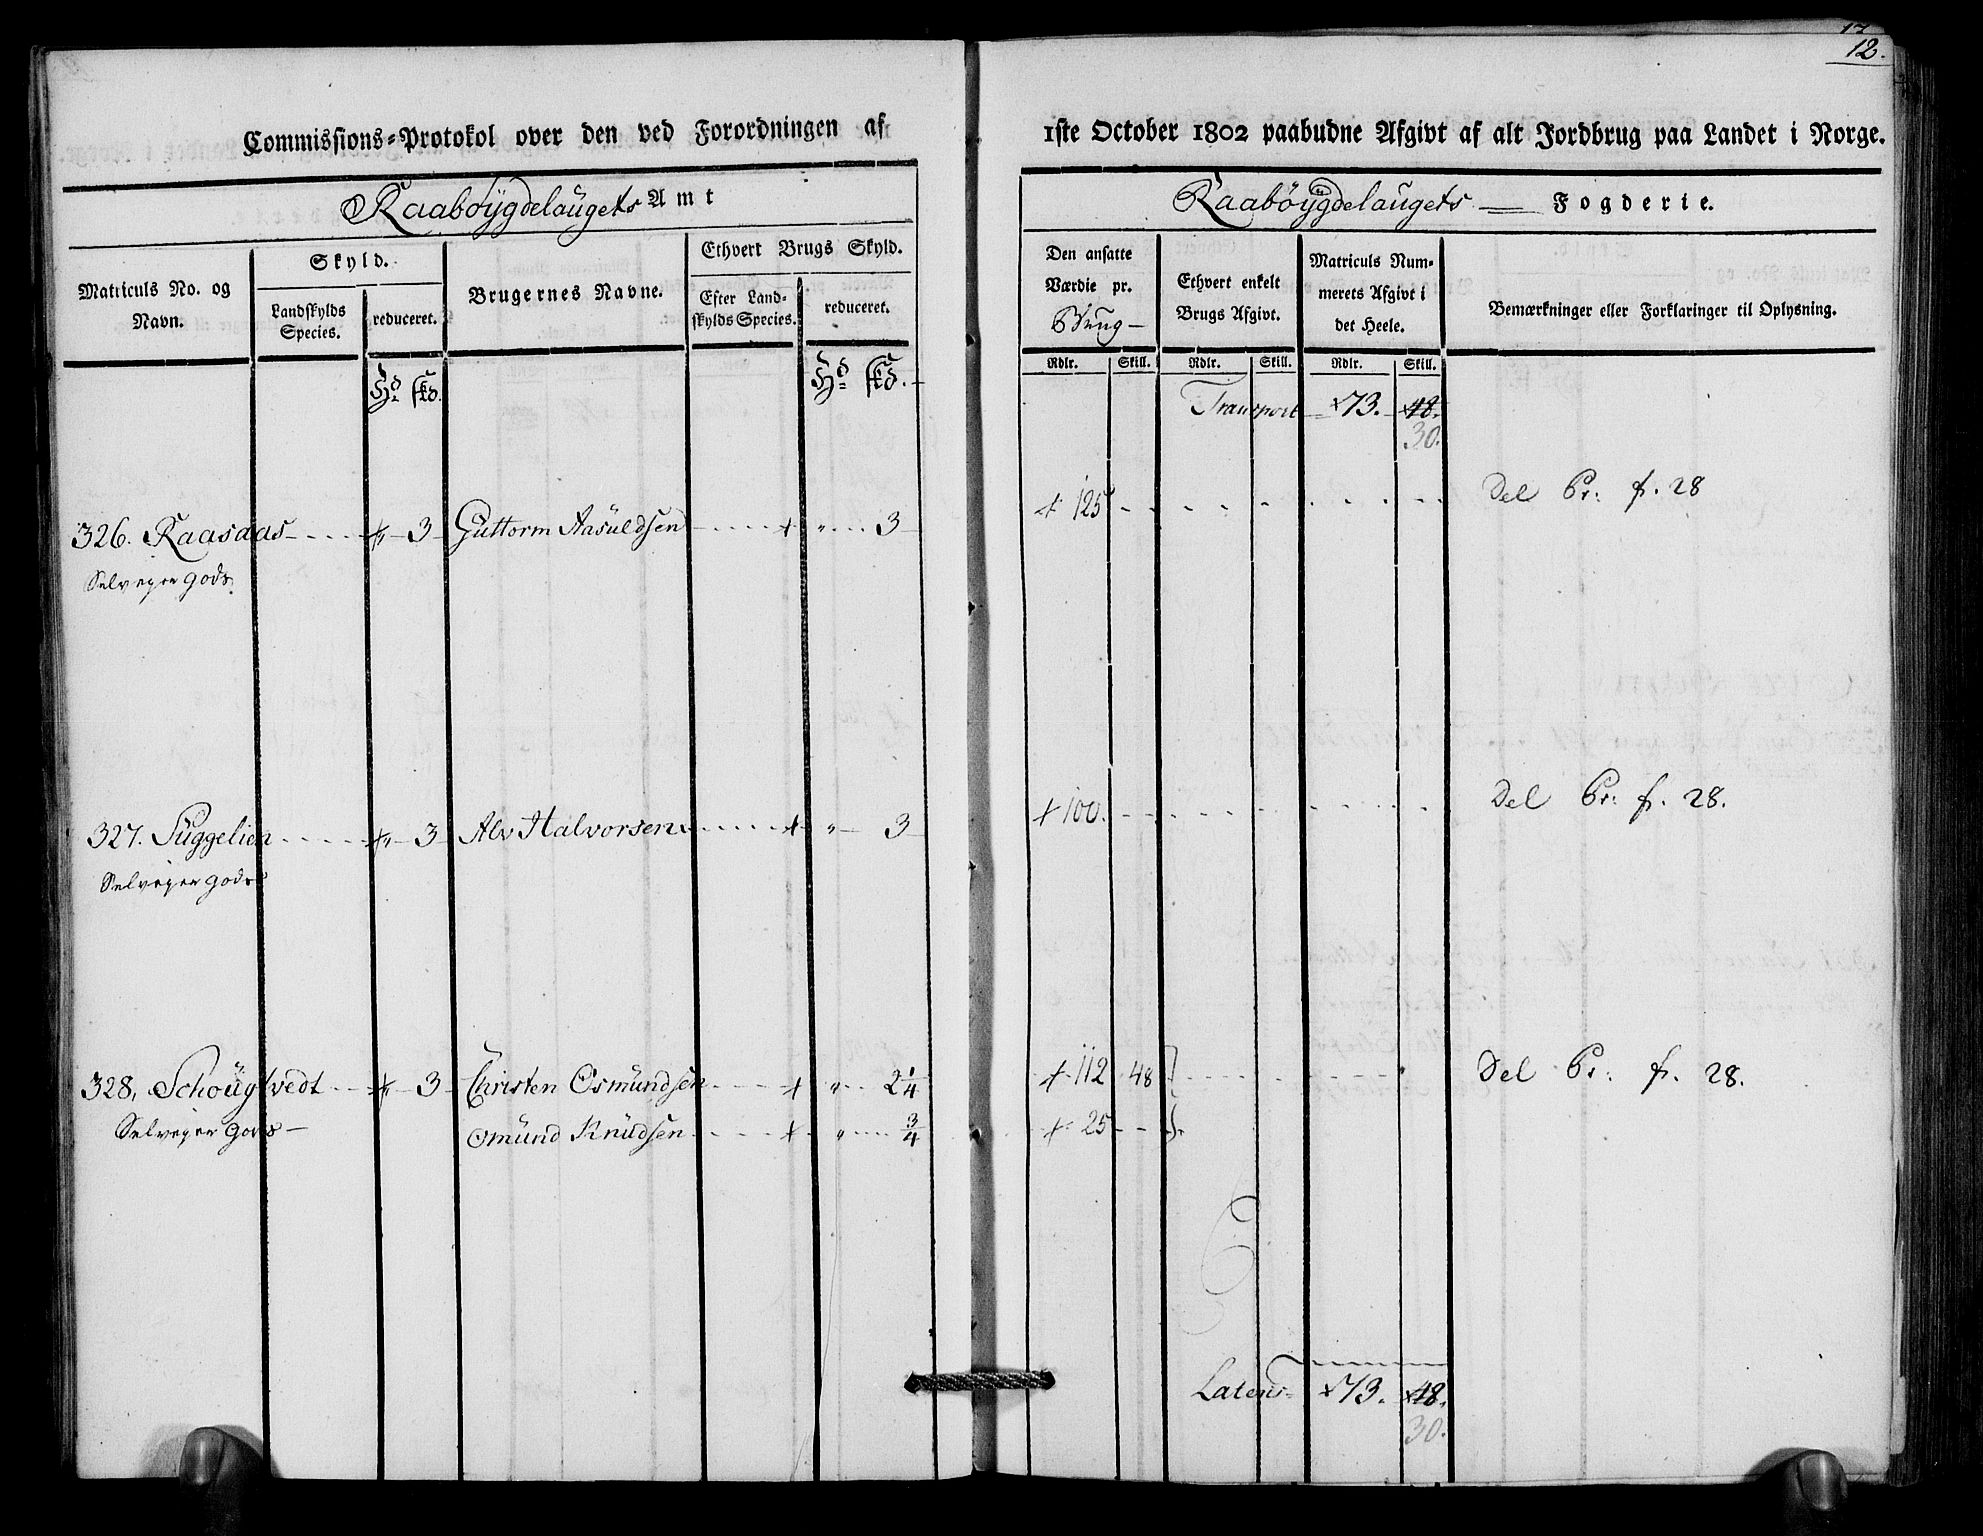 17
12.
Commissions=Protokol over den ved Forordningen af
1ste October 1802 paabudne Afgivt af alt Jordbrug paa Landet i Norge.
Raabøygdelaugets Amt
Raabøygdelaugets Fogderie.
Matriculs No. og Navn.
Skyld.
Landskylds Species.
reduceret.
Brugernes Navne.
Ethvert Brugs Skyld.
Efter Land-skylds Species.
reduceret.
Den ansatte Værdie pr. Brug
Ethvert enkelt Brugs Afgivt.
Matriculs Num-merets Afgivt i det Heele.
Bemærkninger eller Forklaringer til Oplysning.
Rdlr. Skill. Rdlr. Skill. Rdlr. Skill.
Hd. skd. Hd. skd.
Transport 73. 48.
30.
326. Raasaas 3 Guttorm Aasuldsen " 3 125 Del Pr: fr. 28
Selveyer gods.
327. Suggelien " 3 Alv Halvorsen " 3 100. Del Pr: fr. 28.
Selveyer gods
328, Schougtvedt " 3 Christen Osmundsen " 2 1/4 112 48 Del Pr: fr. 28.
Selveyer gods Osmund Knudsen " 3/4 25
Latens 73. 48.
30.